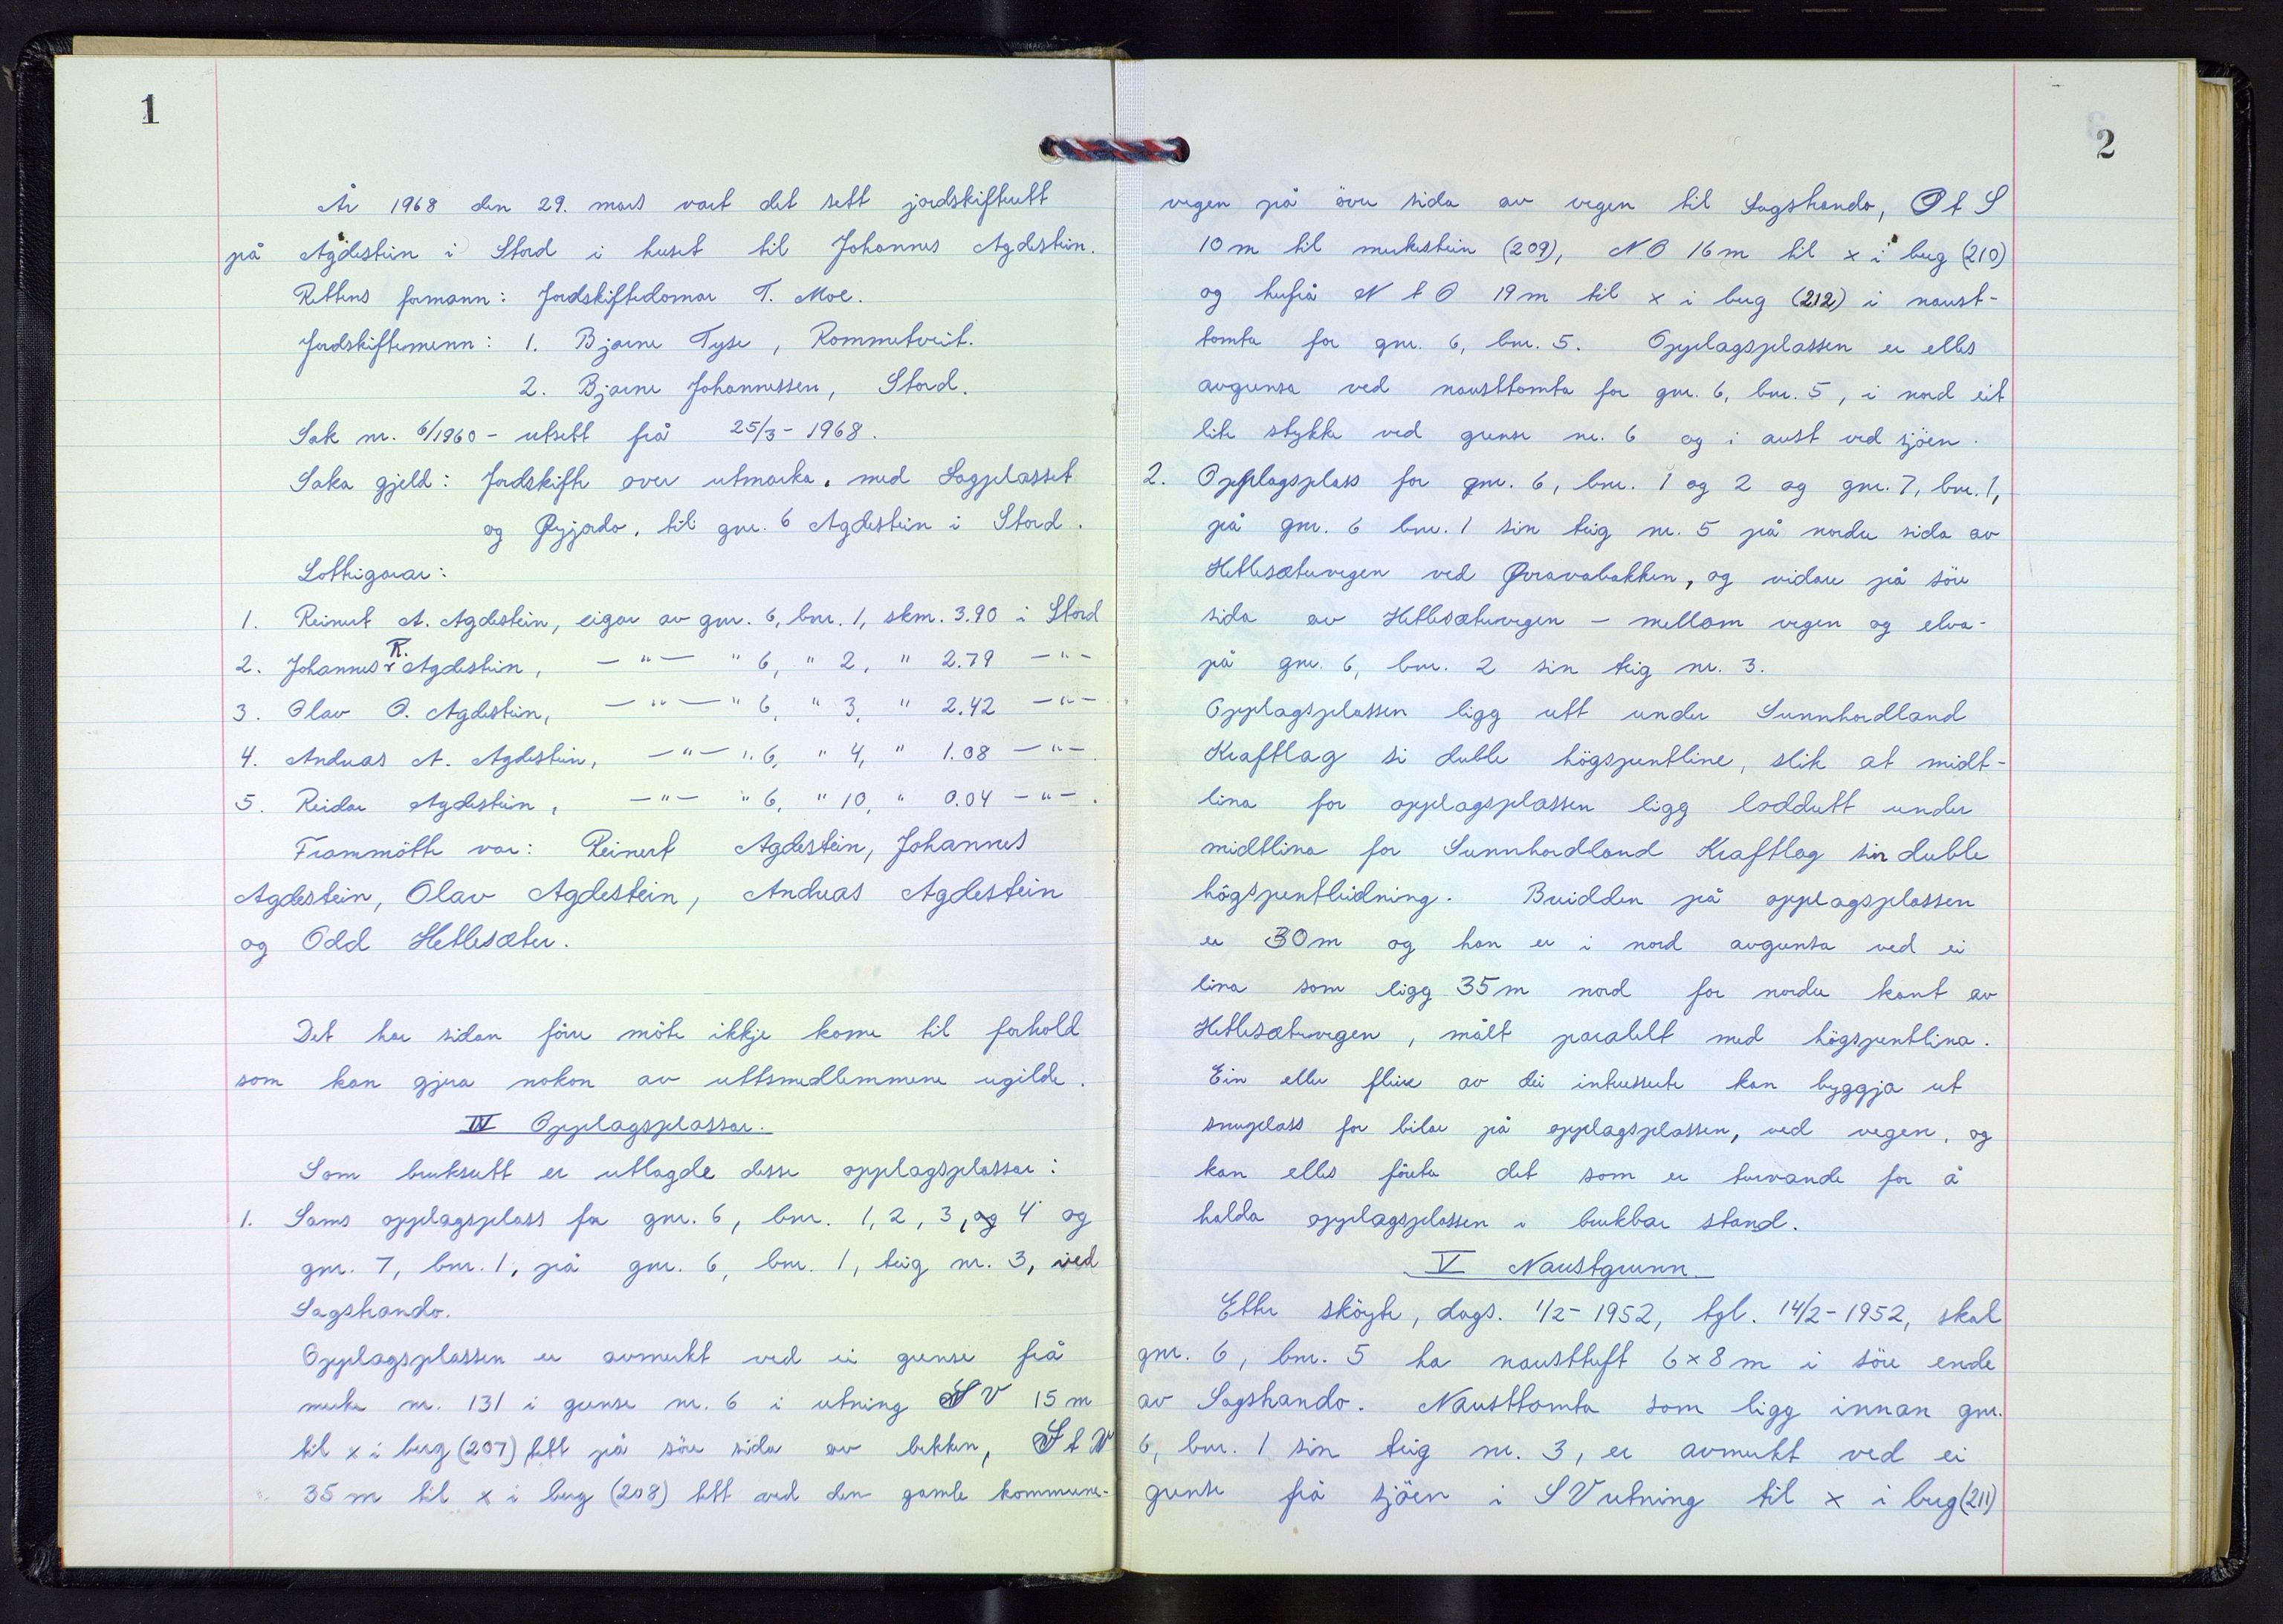 1
År 1968 den 29. mars vart det sett jordskifterett
på Agdestein i Stord i huset til Johannes Agdestein.
Rettens formann: Jordskiftedomar T. Moe.
Jordskiftemenn: 1. Bjarne Tyse, Rommetveit.
2. Bjarne Johannessen, Stord.
Sak nr. 6/1960 - utsett frå 25/3 - 1968.
Saka gjeld: Jordskifte over utmarka, med Sagplasset
og Øyjordo, til gnr. 6 Agdestein i Stord.
Lotteigarar:
1. Reinert A. Agdestein, eigar av gnr. 6, bnr. 1, skm. 3.90 i Stord
2. Johannes R. Agdestein, — " — " 6, " 2, " 2.79 — " —
3. Olav O. Agdestein, — " — " 6, " 3, " 2.42 — " —
4. Andreas A. Agdestein, — " — " 6, " 4, " 1.08 — " —
5. Reidar Agdestein, — " — " 6, " 10, " 0.04 — " — .
Frammötte var: Reinert Agdestein, Johannes
Agdestein, Olav Agdestein, Andreas Agdestein
og Odd Hetlesæter.
Det har sidan förre möte ikkje kome til forhold
som kan gjera nokon av rettsmedlemmene ugilde.
IV Opplagsplassar.
Som bruksrett er utlagde desse opplagsplassar:
1. Sams opplagsplass for gnr. 6, bnr. 1, 2, 3, og 4 og
gnr. 7, bnr. 1, på gnr. 6, bnr. 1, teig nr. 3, ved
Sagstrando.
Opplagsplassen er avmerkt ved ei grense frå
merke nr. 131 i grense nr. 6 i retning SV 15 m
til x i berg (207) tett på söre sida av bekken, S t V
35 m til x i berg (208) tett ved den gamle kommune-
2
vegen på övre sida av vegen til Sagstrando, O t S
10 m til merkestein (209), NO 16 m til x i berg (210)
og herfrå N t O 19 m til x i berg (212) i naust-
tomta for gnr. 6, bnr. 5. Opplagsplassen er elles
avgrensa ved nausttomta for gnr. 6, bnr. 5, i nord eit
lite stykke ved grense nr. 6 og i aust ved sjöen.
2. Opplagsplass for gnr. 6, bnr. 1 og 2 og gnr. 7, bnr. 1,
på gnr. 6 bnr. 1 sin teig nr. 5 på nordre sida av
Hetlesætervegen ved Øvravabakken, og vidare på söre
sida av Hetlesætervegen - mellom vegen og elva -
på gnr. 6, bnr. 2 sin teig nr. 3.
Opplagsplassen ligg rett under Sunnhordland
Kraftlag si duble högspentline, slik at midt-
lina for opplagsplassen ligg loddrett under
midtlina for Sunnhordland Kraftlag sin duble
högspentleidning. Breidden på opplagsplassen
er 30 m og han er i nord avgrensa ved ei
lina som ligg 35 m nord for nordre kant av
Hetlesætervegen, målt paralelt med högspentlina.
Ein eller fleire av dei interesserte kan byggja ut
snuplass for bilar på opplagsplassen, ved vegen, og
kan elles företa det som er turvande for å
halda opplagsplassen i brukbar stand.
V Naustgrunn
Etter sköyte, dags. 1/2 - 1952, tgl. 14/2 - 1952, skal
gnr. 6, bnr. 5 ha nausttuft 6 x 8 m i söre ende
av Sagstrando. Nausttomta som ligg innan gnr.
6, bnr. 1 sin teig nr. 3, er avmerkt ved ei
grense frå sjöen i SV retning til x i berg (211)